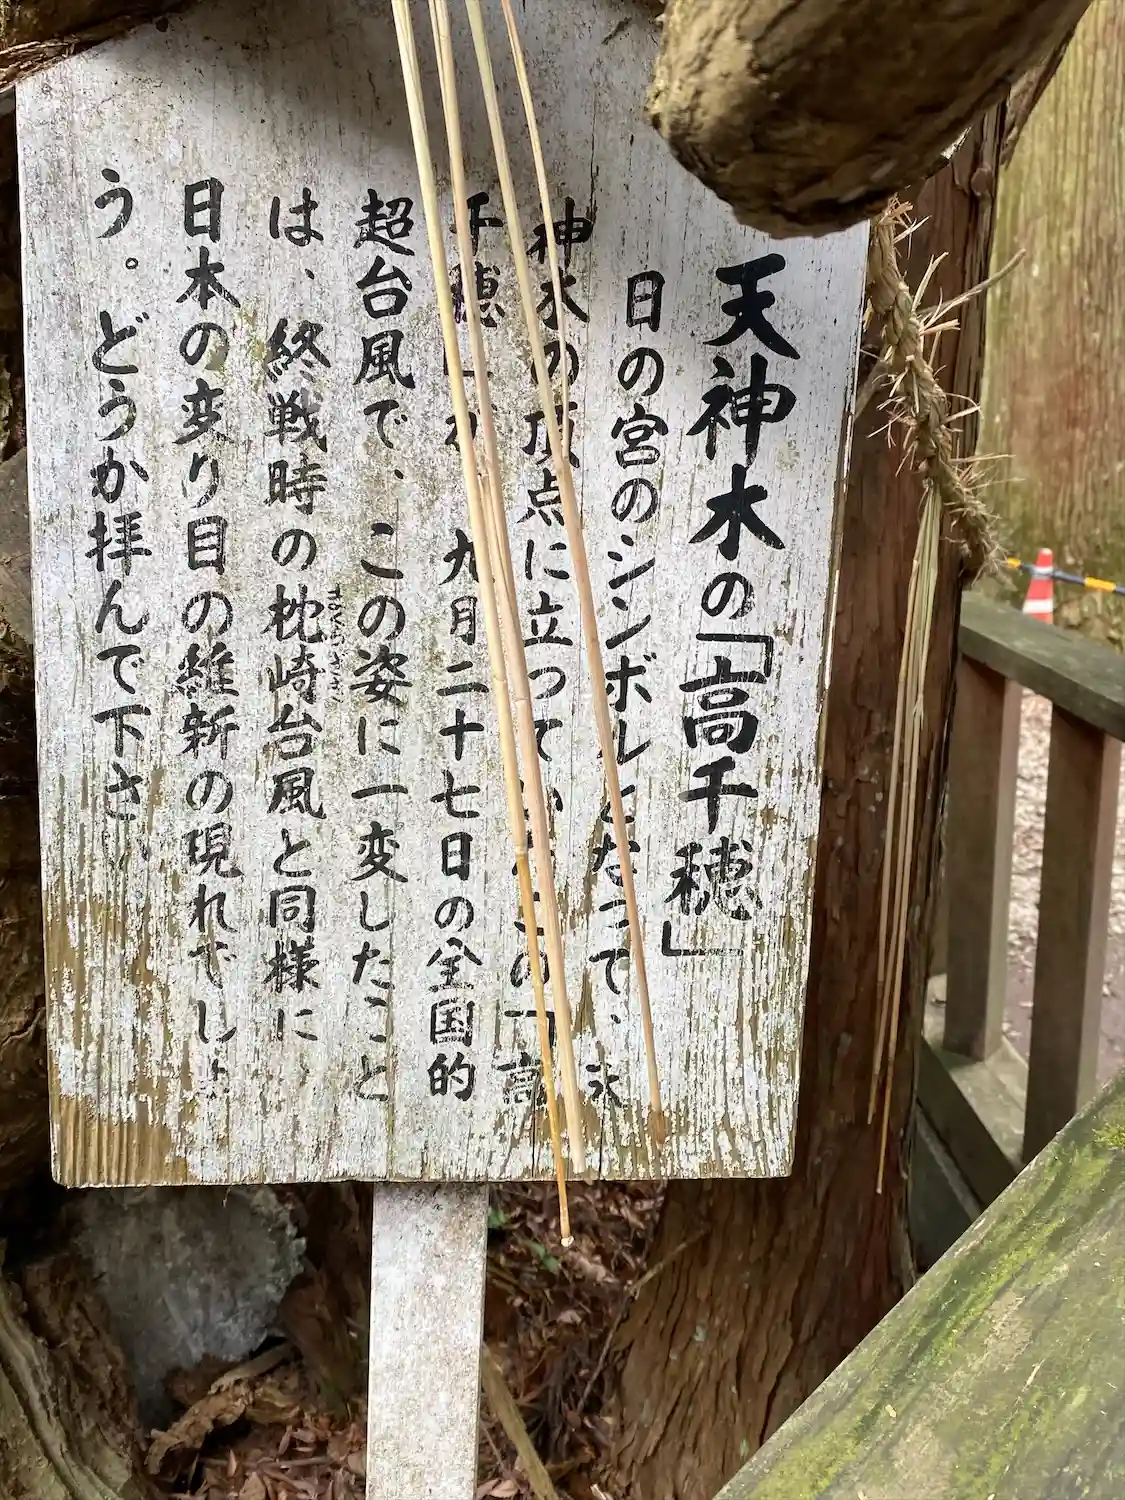 天神木の「高千穂」
日の宮のシンボルとなって、天
神木の頂点に立っていたこの「高
千穂」が、九月二十七日の全国的
超台風で、この姿に一変したこと
は、終戦時の枕崎台風と同様に
日本の変り目の維新の現れでしょ
う。どうか拝んで下さい